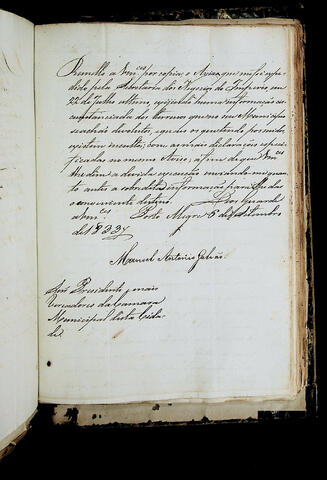 Remetto a Vm.ces por copia o Aviso que me foi expe-
dido pela Secretaria dos Negocios do Imperio em
22 de Julho ultimo, exigindo huma informação cir-
cunstanciada dos terrenos que no seu Municipio
se achão devolutos, e dos que tendo possuidor,
existem incultos, com as mais declarações especi-
ficadas no mesmo Aviso; a fim de que Vm.ces
lhe dem a devida execução enviando-me quan-
to antes a sobredita informação para ter
o conveniente destino. Deos Guarde
a Vm.ces Porto Alegre 5 de Setembro
de 1833
Manoel Antonio Galvão
Snr. Presidente, e mais
Vereadores da Camara
Municipal desta Cida-
de